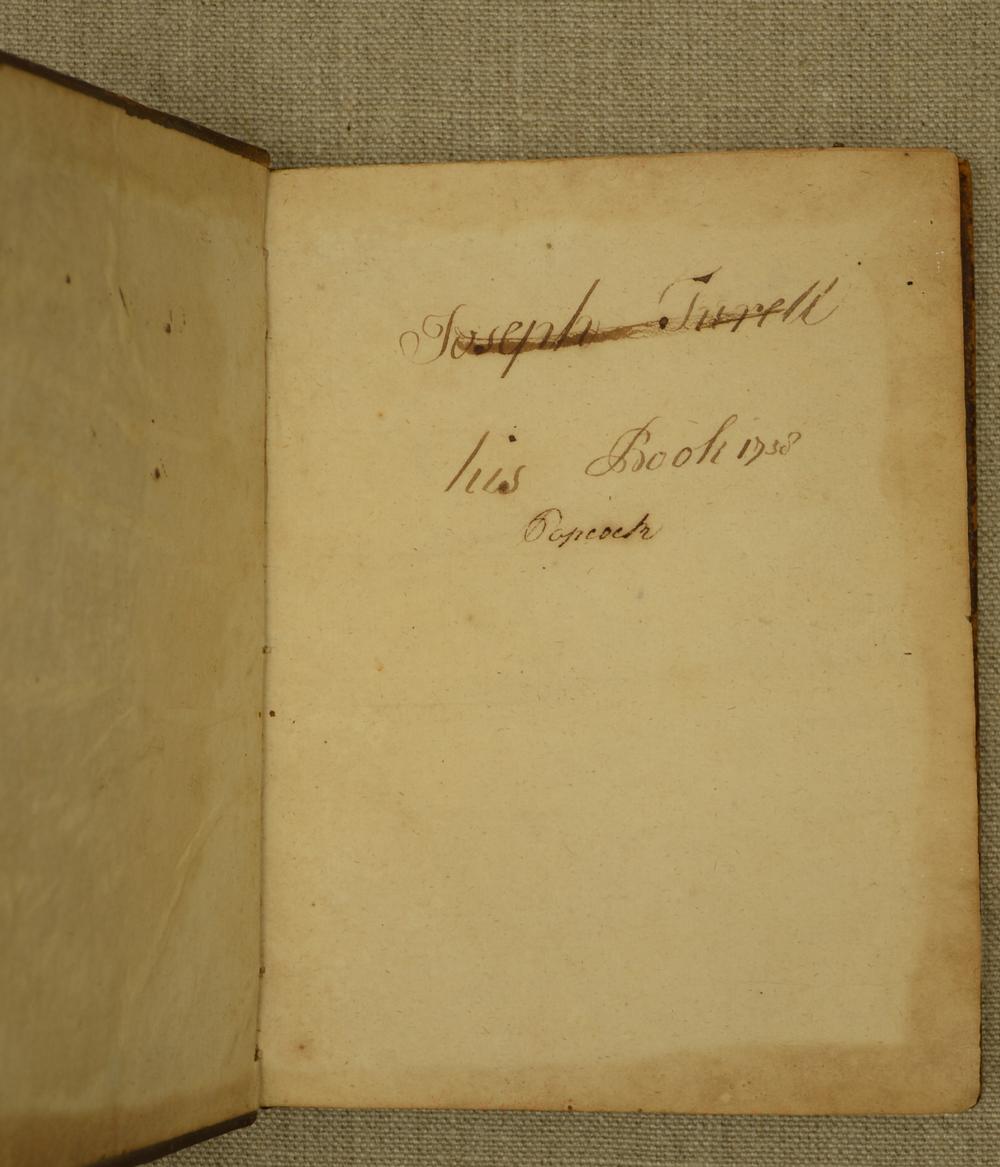 Joseph Turell
his Book 1738
Popcock